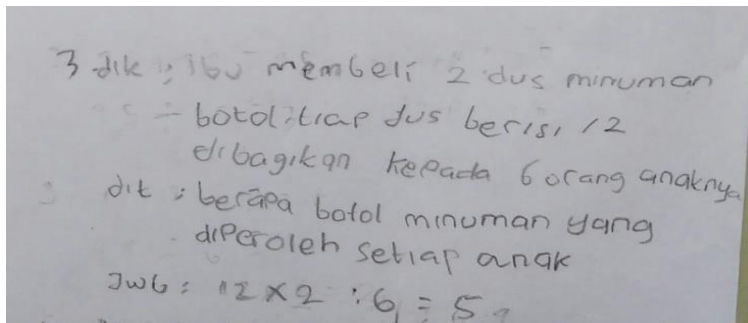 3 dik : Ibu membeli 2 dus minuman
- botol : tiap dus berisi 12
dibagikan kepada 6 orang anaknya
dit : berapa botol minuman yang
diperoleh setiap anak
Jwb : 12 x 2 : 6 = 5